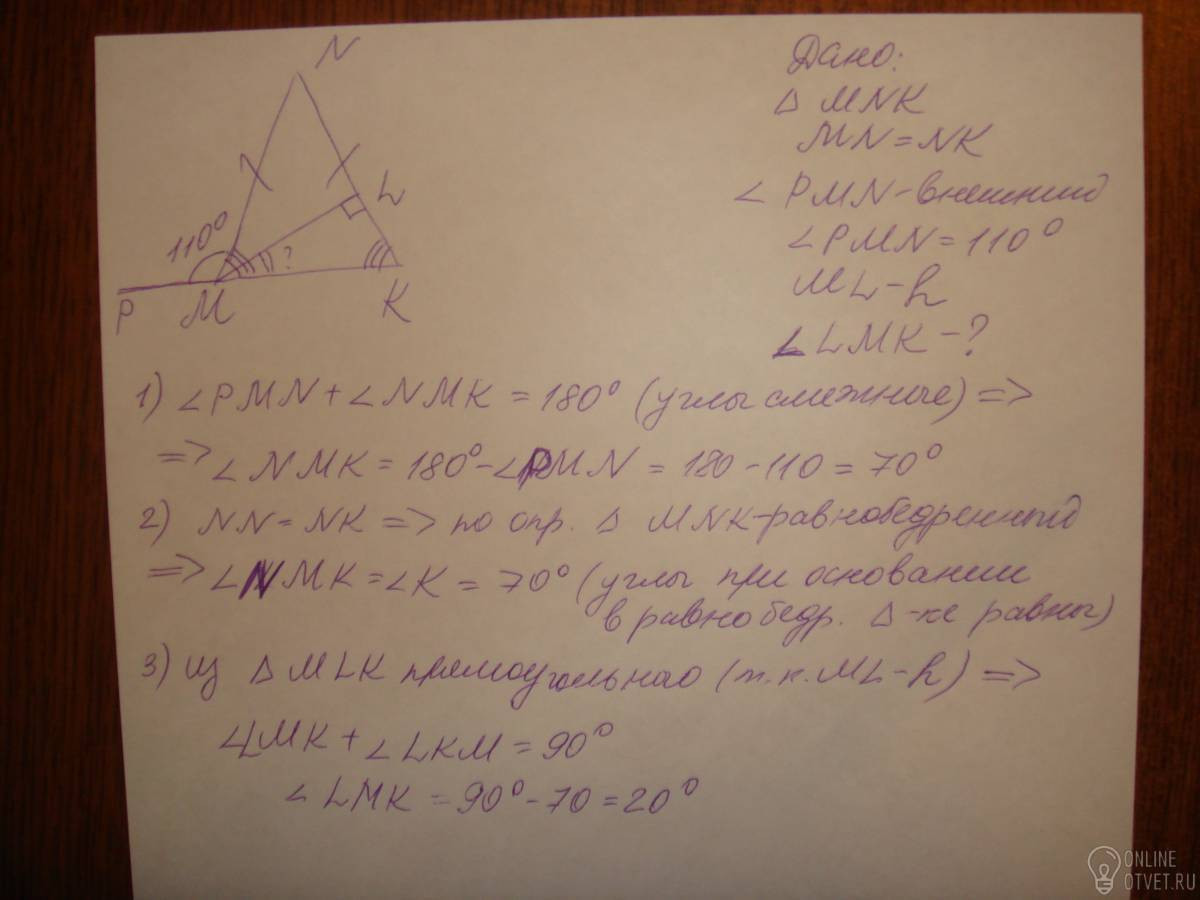 N
L
110°
?
P
M
K
Дано:
△ MNK
MN = NK
∠ PMN - внешний
∠ PMN = 110°
ML - h
∠ LMK - ?
1) ∠PMN + ∠NMK = 180° (углы смежные) =>
=> ∠NMK = 180° - ∠PMN = 180 - 110 = 70°
2) NN = NK => по опр. △ MNK - равнобедренный
=> ∠NMK = ∠K = 70° (углы при основании
в равнобедр. △-ке равны)
3) из △ MLK прямоугольнао (т.к. ML - h) =>
∠LMK + ∠LKM = 90°
∠ LMK = 90° - 70 = 20°
ONLINE
OTVET.RU